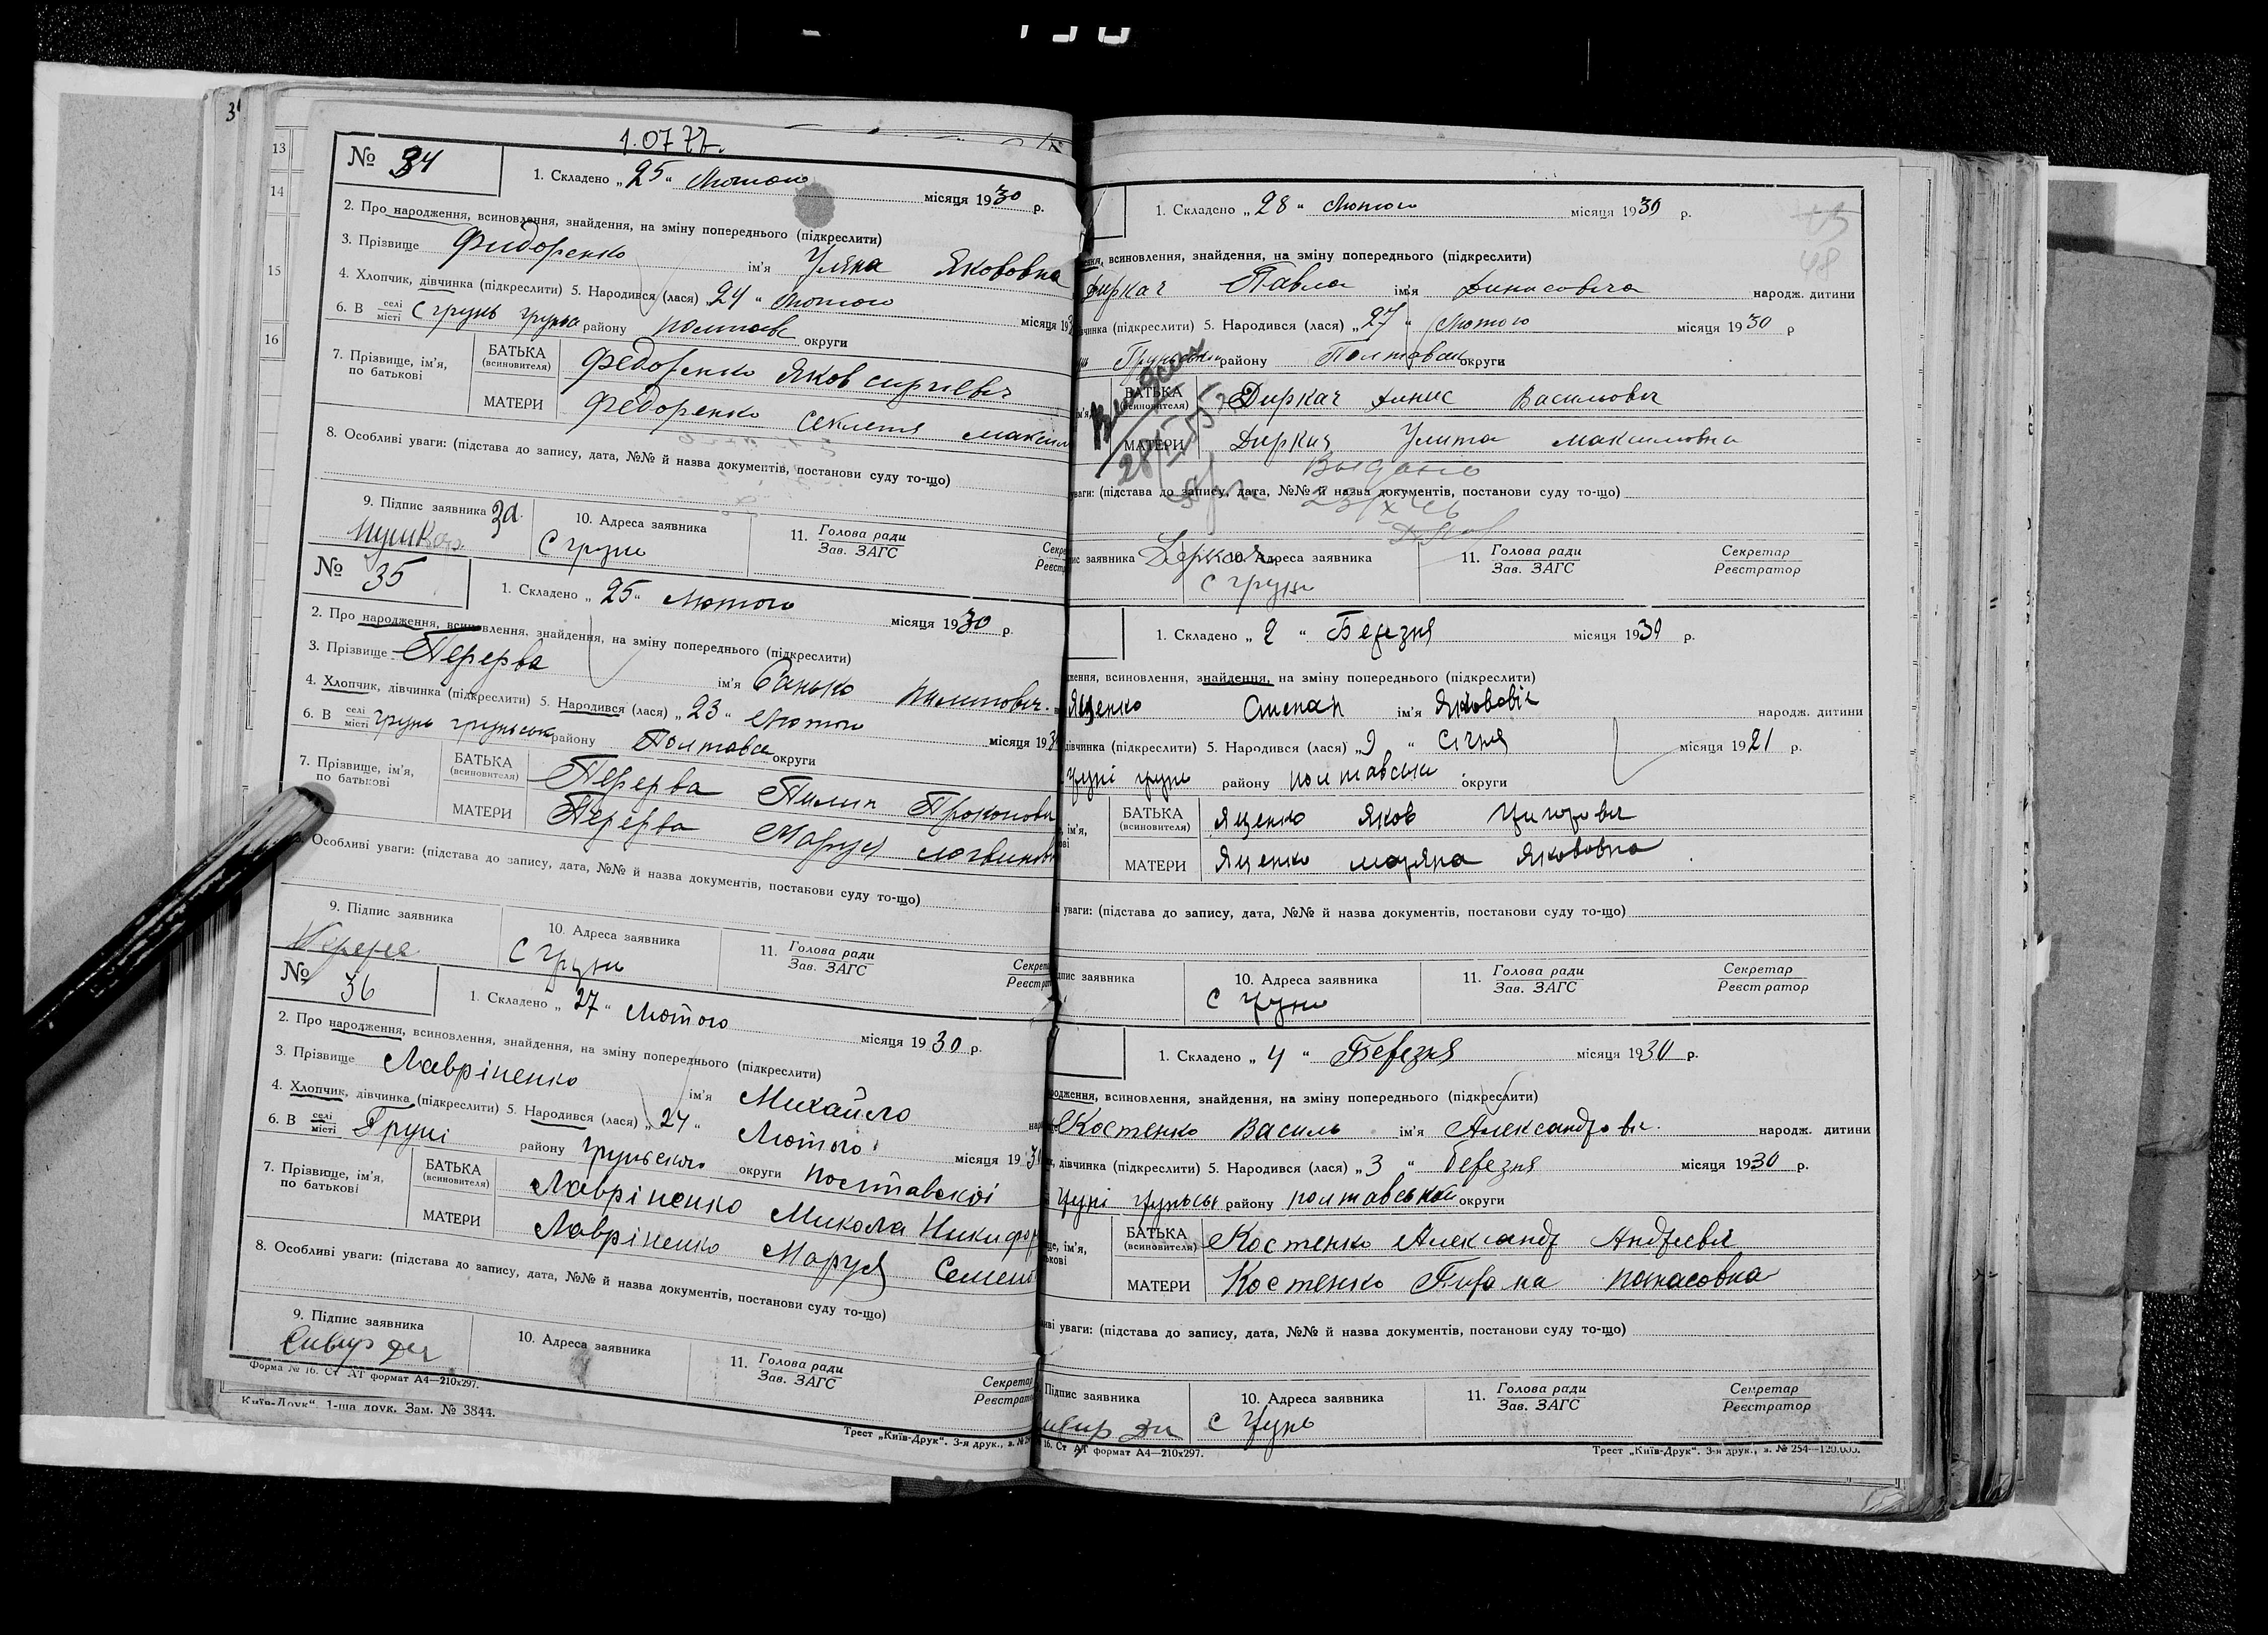 3
13
14
15
16
1.07.77.
№ 34
1. Складено „25“ Лютого місяця 1930 р.
2. Про народження, всиновлення, знайдення, на зміну попереднього (підкреслити)
3. Прізвище Фидоренко ім'я Уляна Якововна
4. Хлопчик, дівчинка (підкреслити) 5. Народився (лася) 24 “ Лютого місяця 193
6. В селі місті С грунь грунська району полтавс округи
7. Прізвище, ім'я, по батькові
БАТЬКА (всиновителя) Федоренко Яков сиргіевич
МАТЕРИ Федоренко Секлетя максим
8. Особливі уваги: (підстава до запису, дата, №№ й назва документів, постанови суду то-що)
9. Підпис заявника За
10. Адреса заявника С грунь
11. Голова ради Зав. ЗАГС
Секре
Реєстр
№ 35
1. Складено „25“ Лютого місяця 1930 р.
2. Про народження, всиновлення, знайдення, на зміну попереднього (підкреслити)
3. Прізвище Перерва ім'я Санько Пилипович
4. Хлопчик, дівчинка (підкреслити) 5. Народився (лася) „23“ Лютого місяця 193
6. В селі місті грунь грунськ району Полтавс округи
7. Прізвище, ім'я, по батькові
БАТЬКА (всиновителя) Перерва Пилип Прокопови
МАТЕРИ Перерва Маруся логвиновн
8. Особливі уваги: (підстава до запису, дата, №№ й назва документів, постанови суду то-що)
9. Підпис заявника
10. Адреса заявника С Грунь
11. Голова ради Зав. ЗАГС
Секрета
Реєстрат
№ 36
1. Складено „27“ Лютого місяця 1930 р.
2. Про народження, всиновлення, знайдення, на зміну попереднього (підкреслити)
3. Прізвище Лавріненко ім'я Михайло
4. Хлопчик, дівчинка (підкреслити) 5. Народився (лася) „24“ Лютого місяця 193
6. В селі місті Груні району грунського округи полтавскоі
7. Прізвище, ім'я, по батькові
БАТЬКА (всиновителя) Лавріненко Микола Никифор
МАТЕРИ Лавріненко Маруся Семен
8. Особливі уваги: (підстава до запису, дата, №№ й назва документів, постанови суду то-що)
9. Підпис заявника
10. Адреса заявника
11. Голова ради Зав. ЗАГС
Секретар
Реєстрато
Форма № 16. Ст АТ формат А4—210х297.
Київ-Друк“. 1-ша друк. Зам. № 3844.
Трест „Київ-Друк“. 3-я друк., з. №
48
1. Складено „28“ Лютого місяця 1930 р.
ення, всиновлення, знайдення, на зміну попереднього (підкреслити)
Диркач Павло ім'я Динисовича народж. дитини
вчинка (підкреслити) 5. Народився (лася) „27“ Лютого місяця 1930 р
Грунськи району Полтавськ округи
БАТЬКА (всиновителя) Диркач Динис Васильович
МАТЕРИ Диркач Улита Максимовна
Выдано
уваги: (підстава до запису, дата, №№ й назва документів, постанови суду то-що)
23/X 46
ис заявника Деркач
10. Адреса заявника С грунь
11. Голова ради Зав. ЗАГС
Секретар
Реєстратор
1. Складено „2“ Березня місяця 1930 р.
ження, всиновлення, знайдення, на зміну попереднього (підкреслити)
Яценко Степан ім'я Яковович народж. дитини
дівчинка (підкреслити) 5. Народився (лася) „9“ Січня місяця 1921 р.
груні грунь району полтавськи округи
ім'я,
БАТЬКА (всиновителя) Яценко Яков Григорович
МАТЕРИ Яценко маряна Якововна
уваги: (підстава до запису, дата, №№ й назва документів, постанови суду то-що)
дпис заявника
10. Адреса заявника С грунь
11. Голова ради Зав. ЗАГС
Секретар
Реєстратор
1. Складено „4“ Березня місяця 1930 р.
одження, всиновлення, знайдення, на зміну попереднього (підкреслити)
Костенко Василь ім'я Александрович народж. дитини
, дівчинка (підкреслити) 5. Народився (лася) „3“ березня місяця 1930 р.
груні грунськ району полтавської округи
ще, ім'я,
БАТЬКА (всиновителя) Костенко Александр Андреевич
МАТЕРИ Костенко панасовна
иві уваги: (підстава до запису, дата, №№ й назва документів, постанови суду то-що)
Підпис заявника
10. Адреса заявника С Грунь
11. Голова ради Зав. ЗАГС
Секретар
Реєстратор
16. Ст АТ формат А4—210х297.
Трест „Київ-Друк“. 3-я друк., з. № 254—120.000.